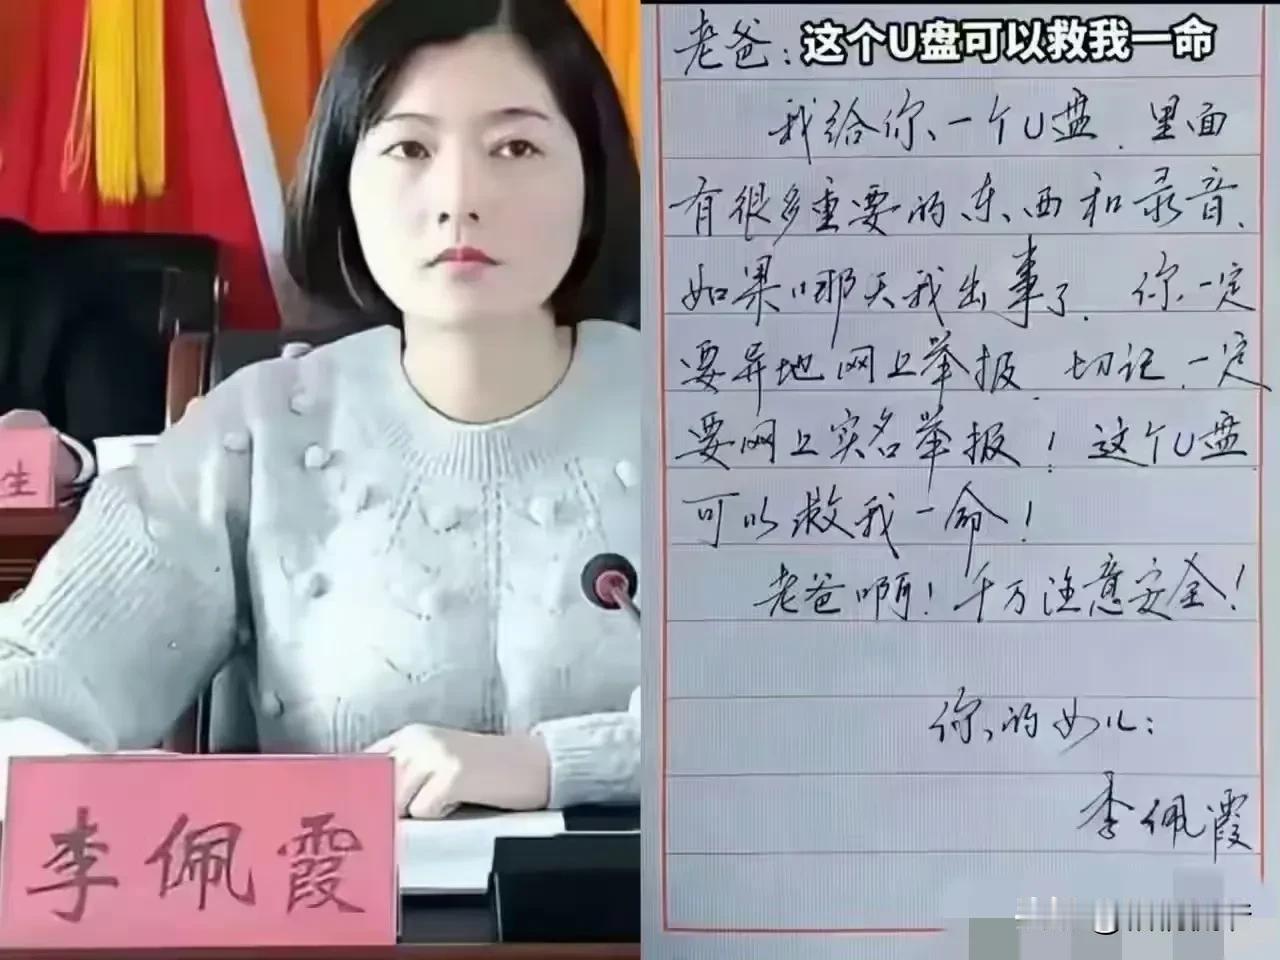 生
李佩霞
这个U盘可以救我一命
老爸:
我给你一个U盘.里面
有很多重要的东西和录音.
如果哪天我出事了.你一定
要异地网上举报.切记.一定
要网上实名举报!这个U盘
可以救我一命!
老爸啊!千万注意安全!
你的女儿:
李佩霞